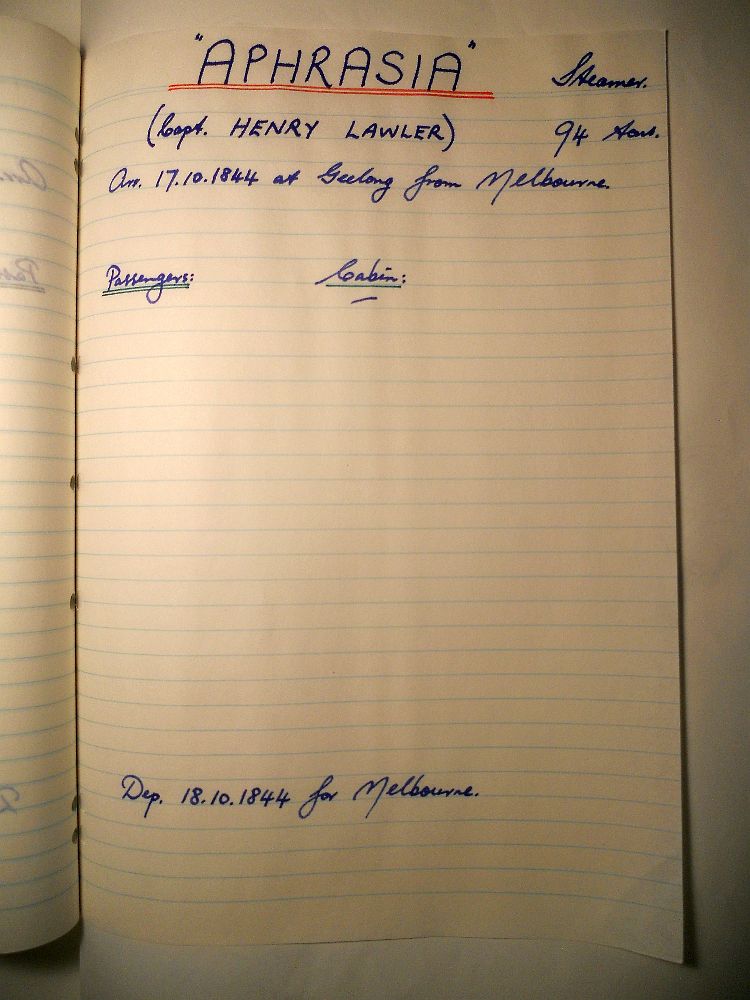 "APHRASIA" Steamer.
(Capt. HENRY LAWLER) 94 tons.
Arr. 17.10.1844 at Geelong from Melbourne.
Passengers: Cabin:
—
Dep. 18.10.1844 for Melbourne.